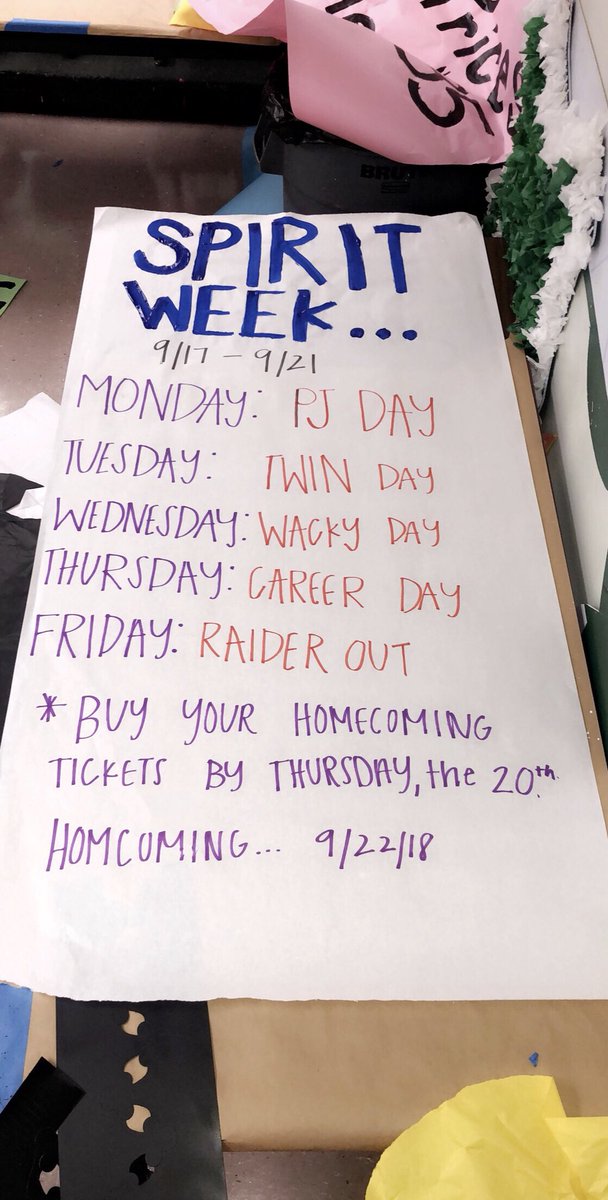 SPIRIT
WEEK...
9/17 - 9/21
MONDAY: PJ DAY
TUESDAY: TWIN DAY
WEDNESDAY: WACKY DAY
THURSDAY: CAREER DAY
FRIDAY: RAIDER OUT
* BUY YOUR HOMECOMING
TICKETS BY THURSDAY, the 20th.
HOMCOMING... 9/22/18